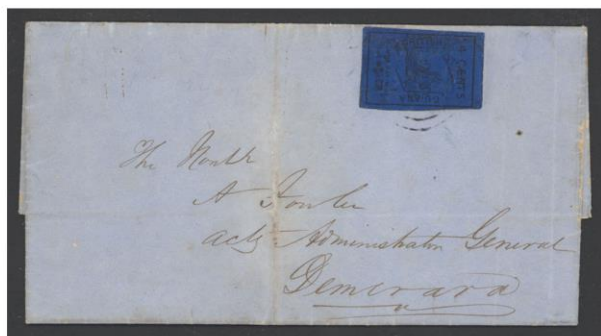 CENTS
The Honble
A Fowler
actg Administrator General
Demerara